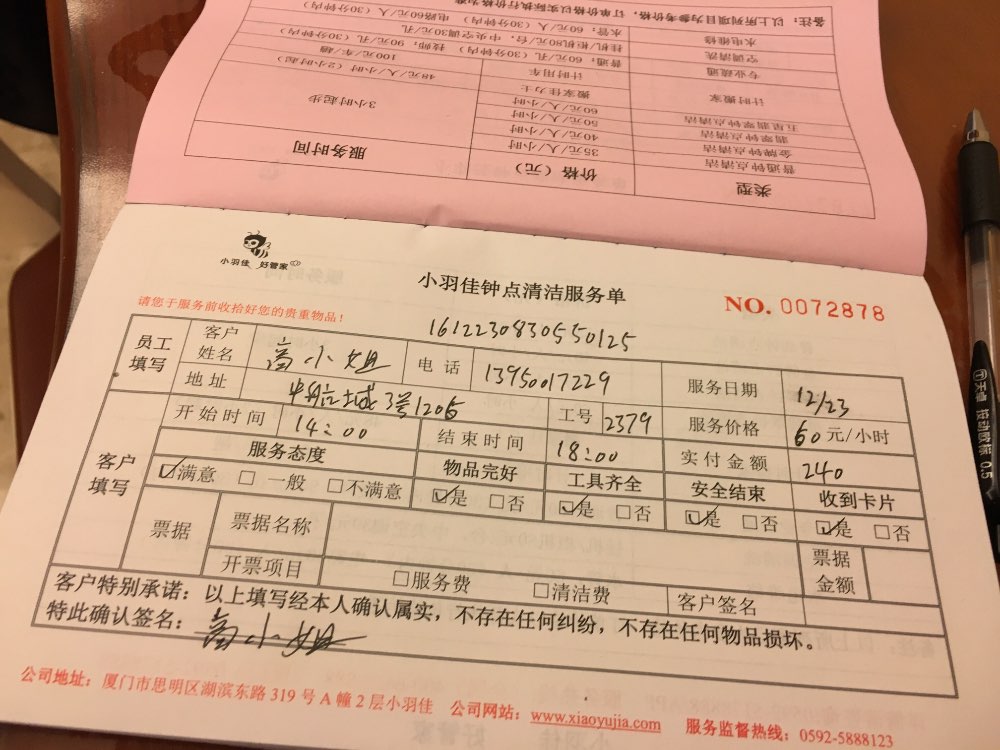 备注：以上所列项目为参考价格，订单价格以实际执行价格为准
水电维修 水管：60元/人（30分钟内） 电路60元/人（30分钟内）
空调清洗 挂机/柜机80元/台，中央空调30元/孔
专业疏通 普通：60元/孔（30分钟内） 技师：90元/孔（30分钟内）
计时搬家 计时用车 100元/车/趟
搬家佳力士 48元/人/小时（2小时起）
五星翡翠钟点清洁 60元/人/小时 3小时起步
翡翠钟点清洁 50元/人/小时
金牌钟点清洁 40元/人/小时
普通钟点清洁 35元/人/小时
类型 价格（元） 服务时间
小羽佳 好管家
小羽佳钟点清洁服务单
NO. 0072878
请您于服务前收拾好您的贵重物品！
1612230830550125
员工填写 客户姓名 高小姐 电话 13950017229 服务日期 12/23
地址 中航城3号1206 工号 2379 服务价格 60元/小时
开始时间 14:00 结束时间 18:00 实付金额 240
客户填写 服务态度 物品完好 工具齐全 安全结束 收到卡片
☑满意 □一般 □不满意 ☑是 □否 ☑是 □否 ☑是 □否 ☑是 □否
票据 票据名称 票据金额
开票项目 □服务费 □清洁费 客户签名
客户特别承诺：以上填写经本人确认属实，不存在任何纠纷，不存在任何物品损坏。
特此确认签名：高小姐
公司地址：厦门市思明区湖滨东路319号A幢2层小羽佳 公司网站：www.xiaoyujia.com 服务监督热线：0592-5888123